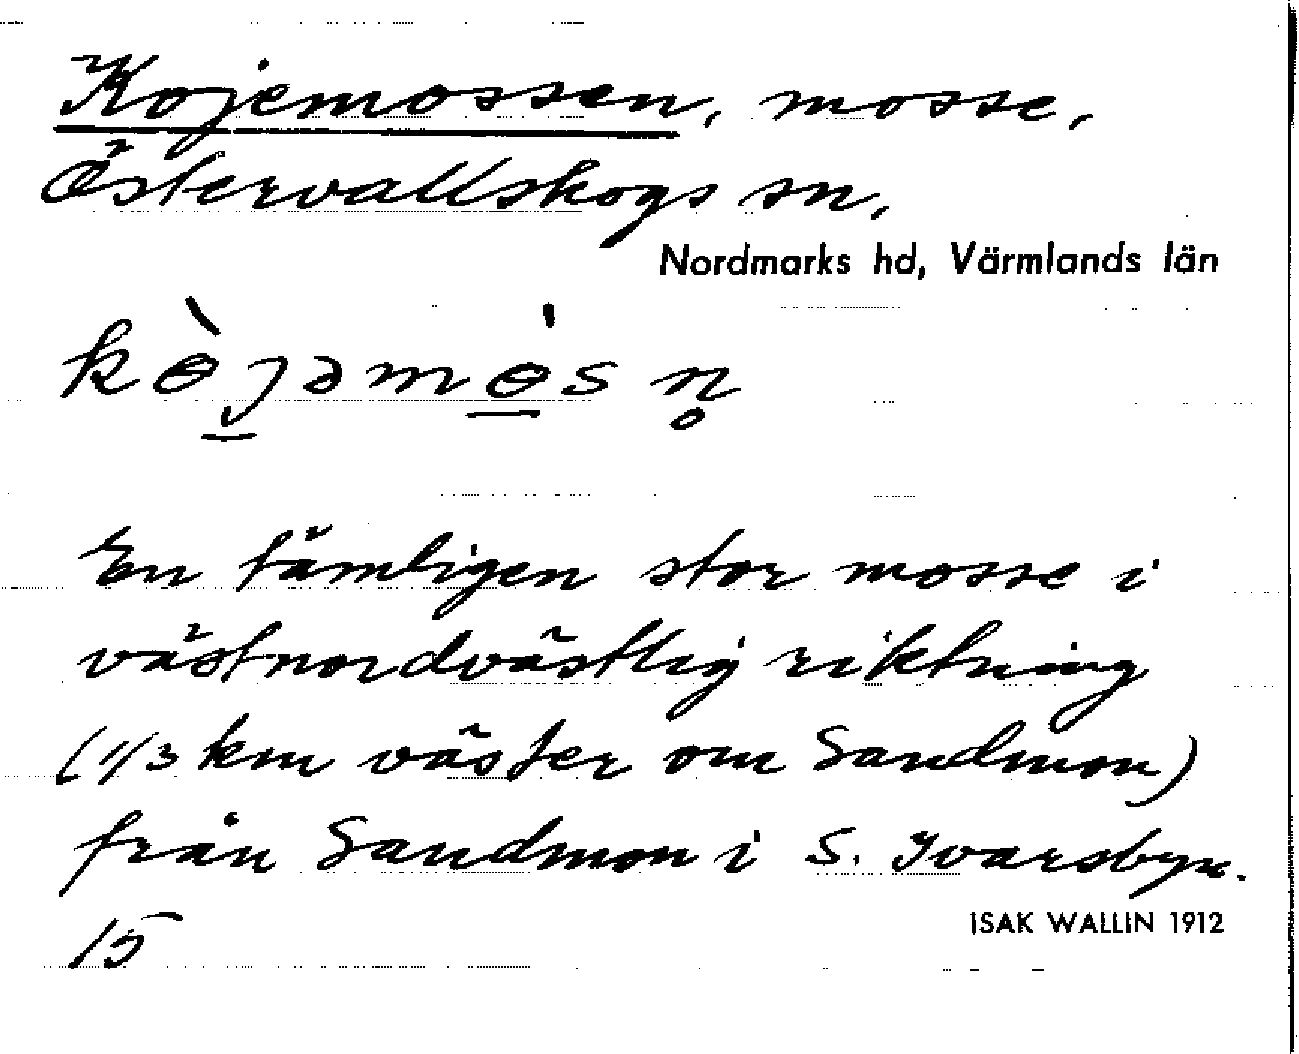 Kojemossen, mosse,
Östervallskogs sn,
Nordmarks hd, Värmlands län
kɵ̀jəmɵ́sn̥
En tämligen stor mosse i
västnordvästlig riktning
(1/3 km väster om Sandmon)
från Sandmon i S. Ivarsbyn.
15
ISAK WALLIN 1912